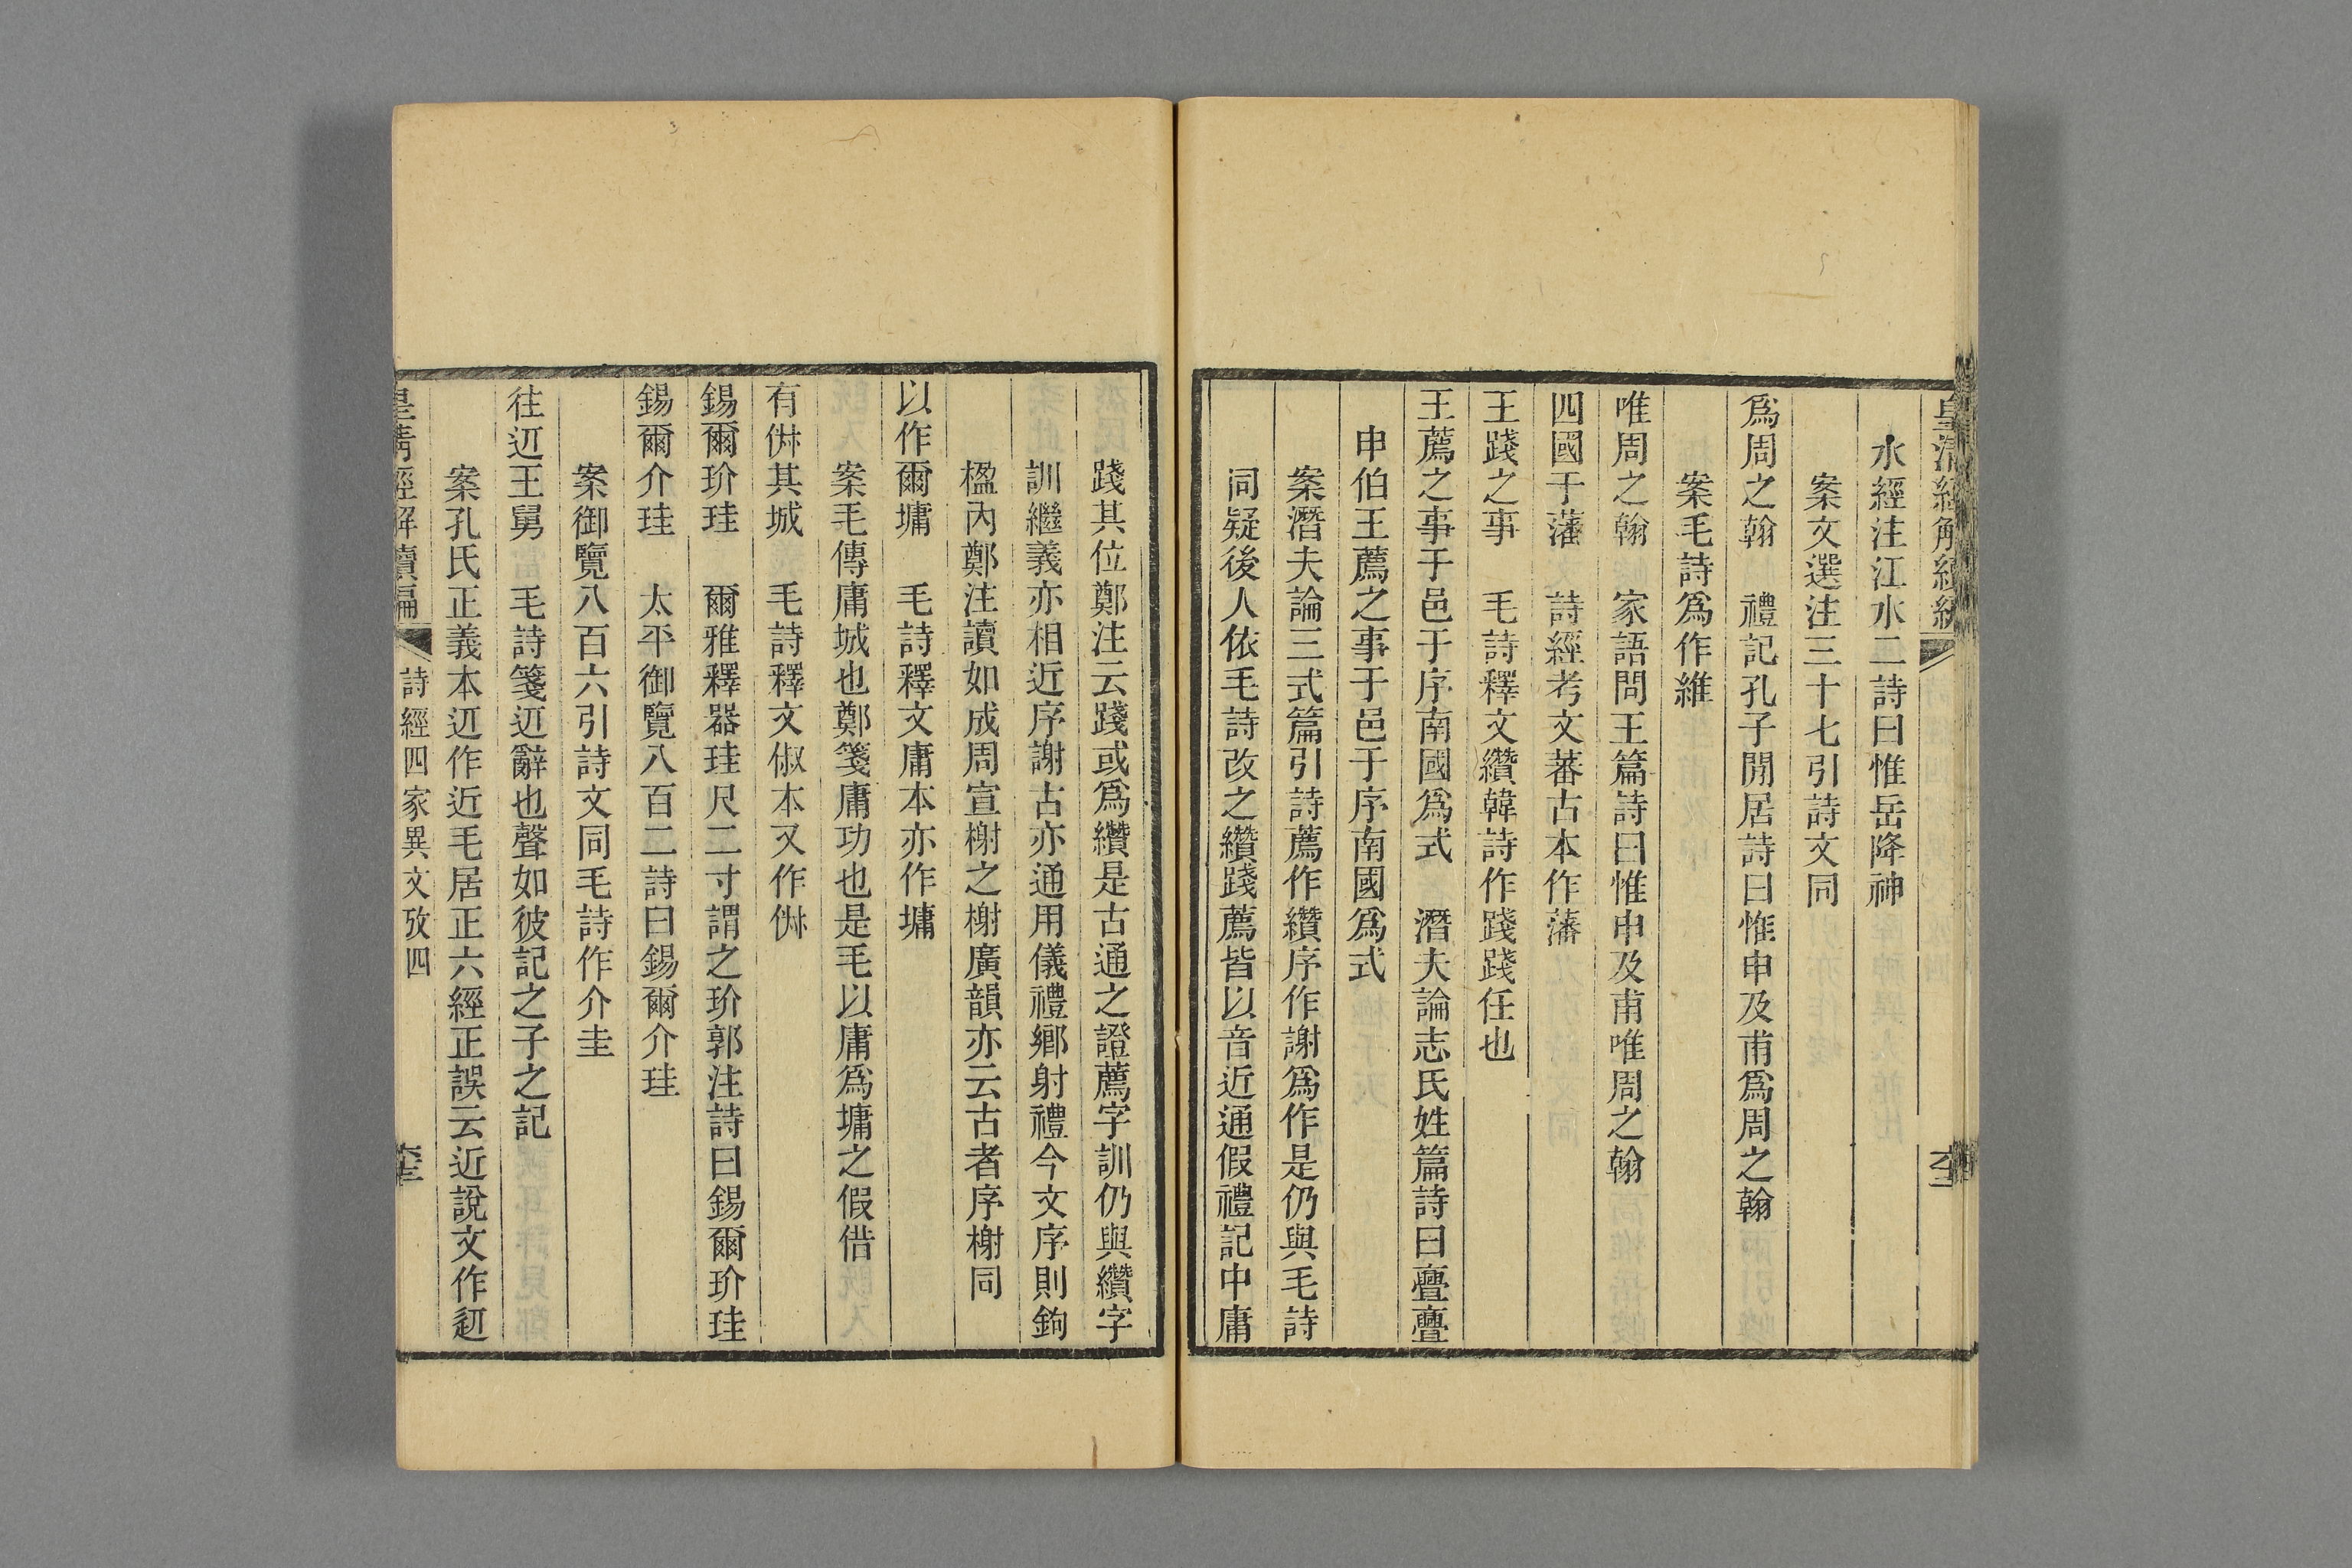 水經注江水二詩曰惟岳降神
案文選注三十七引詩文同
爲周之翰　禮記孔子閒居詩曰惟申及甫爲周之翰
案毛詩爲作維
唯周之翰　家語問王篇詩曰惟申及甫唯周之翰
四國于藩　詩經考文蕃古本作藩
王踐之事　毛詩釋文纘韓詩作踐踐任也
王薦之事于邑于序南國爲式　潛夫論志氏姓篇詩曰亹亹
申伯王薦之事于邑于序南國爲式
案潛夫論三式篇引詩薦作纘序作謝爲作是仍與毛詩
同疑後人依毛詩改之纘踐薦皆以音近通假禮記中庸
踐其位鄭注云踐或爲纘是古通之證薦字訓仍與纘字
訓繼義亦相近序謝古亦通用儀禮鄉射禮今文序則鉤
楹內鄭注讀如成周宣榭之榭廣韻亦云古者序榭同
以作爾墉　毛詩釋文庸本亦作墉
案毛傳庸城也鄭箋庸功也是毛以庸爲墉之假借
有㑐其城　毛詩釋文俶本又作㑐
錫爾玠珪　爾雅釋器珪尺二寸謂之玠郭注詩曰錫爾玠珪
錫爾介珪　太平御覽八百二詩曰錫爾介珪
案御覽八百六引詩文同毛詩作介圭
往䢋王舅　毛詩箋䢋辭也聲如彼記之子之記
案孔氏正義本䢋作近毛居正六經正誤云近說文作䢋
皇清經解續編　詩經四家異文攷四